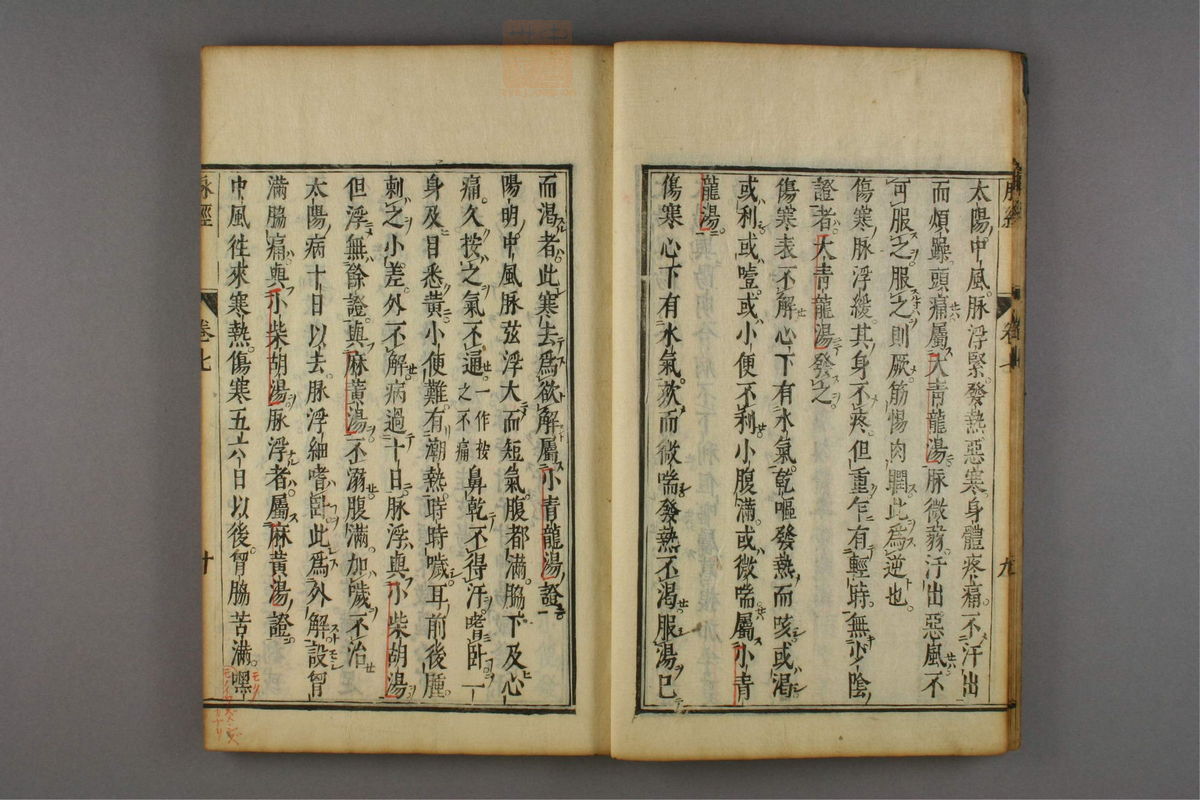 太陽中風脉浮緊發熱惡寒身體疼痛不汗出
而煩躁頭痛屬大青龍湯脉微弱汗出惡風不
可服之服之則厥筋惕肉瞤此爲逆也
傷寒脉浮緩其身不疼但重乍有輕時無少陰
證者大青龍湯發之
傷寒表不解心下有水氣乾嘔發熱而咳或渴
或利或噎或小便不利小腹滿或微喘屬小青
龍湯
傷寒心下有水氣欬而微喘發熱不渴服湯已
而渴者此寒去爲欲解屬小青龍湯證
陽明中風脉弦浮大而短氣腹都滿脇下及心
痛久按之氣不通一作按之不痛鼻乾不得汗嗜卧一
身及目悉黄小便難有潮熱時時噦耳前後腫
刺之小差外不解病過十日脉浮與小柴胡湯
但浮無餘證與麻黄湯不溺腹滿加噦不治
太陽病十日以去脉浮細嗜卧此爲外解設胷
滿脇痛與小柴胡湯脉浮者屬麻黄湯證
中風徃來寒熱傷寒五六日以後胷脇苦滿嘿
脉經
卷七
十
卷七
九